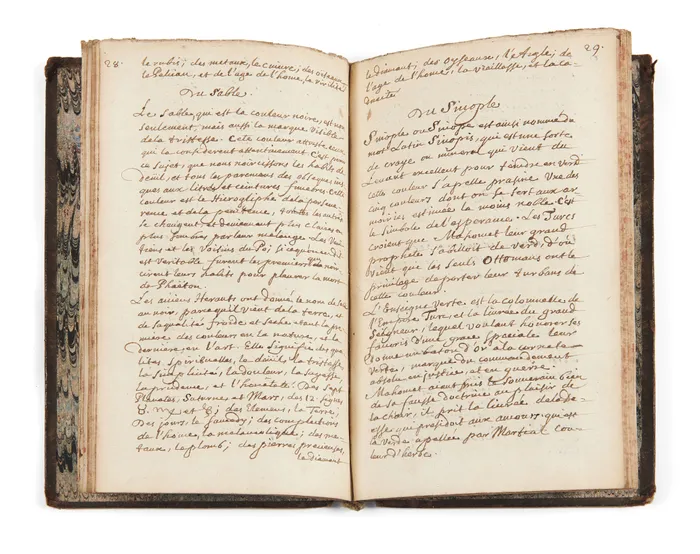 28.
le rubis; des metaux, le cuivre; des oiseaux
le Pelican, et de l'age de l'home, la virilité.
Du Sable.
Le Sable, qui est la couleur noire, est non
seulement, mais aussi la marque visible
de la tristesse. Cete couleur atriste ceux
qui la considerent attentivement. C'est pour
ce sujet, que nous noircissons les habits de
deüil, et tous les paremens des obseques
ques aux litres et ceintures funebres. Cete
couleur est le Hieroglyphe de la perseve
rence et de la penitence, toutes les autres
se changent, et deviennent plus claires ou
plus sombres par leur melange. Les
et les Voisins du Po, si ce qu'on en dit
est veritable furent les premiers qui noir
cirent leurs habits pour pleurer la mort
de Phaëton.
Les anciens Herauts ont donné le nom de Sable
au noir, parcequ'il vient de la terre, et
de sa qualité froide et seche etant la pre
miere des couleurs en la nature, et la
derniere en l'art. Elle signifie les qua
lites spirituelles, le deuil, la tristesse,
la simplicité, la douleur, la sagesse,
la prudence, et l'honeteté. Des Sept
Planetes, Saturne, et Mars, des 12. signes,
des Elemens, la Terre;
Des jours, le; des complections
de l'home, la melancolique; des me-
taux, le plomb; des pierres precieuses,
le diamant
29.
le diamant; des Oyseaux, l'Aigle; de
l'age de l'home, la vieillesse, et la ca-
ducité.
Du Sinople
Sinople ou Sinope est ainsi nommé du
mot Latin Sinopis, qui est une sorte
de craye ou mineral qui vient du
Levant excellent pour teindre en verd
cette couleur s'apelle prasine Une des
cinq couleurs dont on se sert aux ar
moiries estimée la moins noble. C'est
le simbole de l'esperance. Les Turcs
croient que Mahomet leur grand
prophete s'abilloit de verd, d'où
vient que les seuls Ottomans ont le
privilege de porter leur turbans de
cette couleur.
L'Enseigne Verte est la colonnelle de
l'Empire Turc, et la livrée du grand
Seigneur, lequel voulant honorer ses
favoris d'une grace speciale leur
done un baton d'or à la cornete
verte, marque du commandement
absolu en justice, et en guerre.
Mahomet aiant pris le souverain bien
de sa fausse doctrine au plaisir de
la chair, il prit la livrée de la De-
esse qui presidoit aux amours, qui est
la verde apellée par Martial cou-
leur d'herbes.